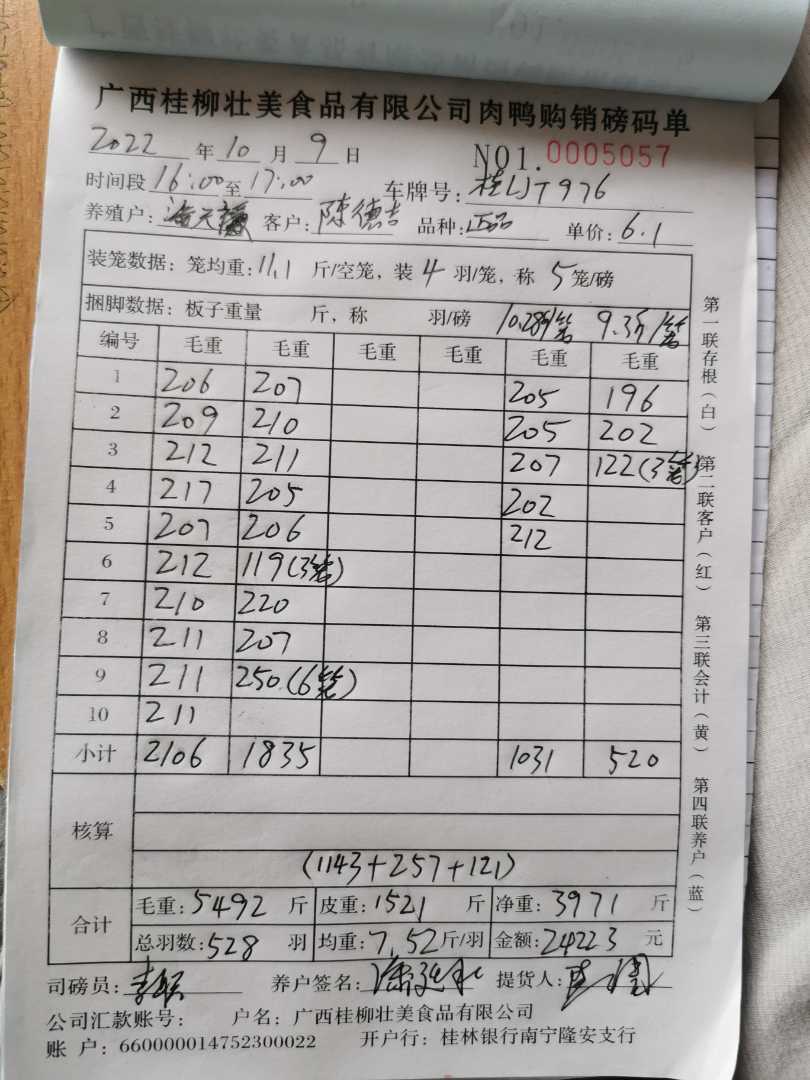 广西桂柳壮美食品有限公司肉鸭购销磅码单
2022 年 10 月 9 日 NO1. 0005057
时间段 16:00 至 17:00 车牌号: 桂LJT976
养殖户: 客户: 陈德吉 品种: 正品 单价: 6.1
装笼数据: 笼均重: 11.1 斤/空笼, 装 4 羽/笼, 称 5 笼/磅
捆脚数据: 板子重量 斤, 称 羽/磅 10.28斤/笼 9.3斤/笼
编号 毛重 毛重 毛重 毛重 毛重 毛重
1 206 207 205 196
2 209 210 205 202
3 212 211 207 122(3笼)
4 217 205 202
5 207 206 212
6 212 119(3笼)
7 210 220
8 211 207
9 211 250(6笼)
10 211
小计 2106 1835 1031 520
核算
(1143+257+121)
合计 毛重: 5492 斤 皮重: 1521 斤 净重: 3971 斤
总羽数: 528 羽 均重: 7.52 斤/羽 金额: 24223 元
司磅员: 养户签名: 提货人:
公司汇款账号: 户名: 广西桂柳壮美食品有限公司
账 户: 660000014752300022 开户行: 桂林银行南宁隆安支行
第一联存根(白) 第二联客户(红) 第三联会计(黄) 第四联养户(蓝)